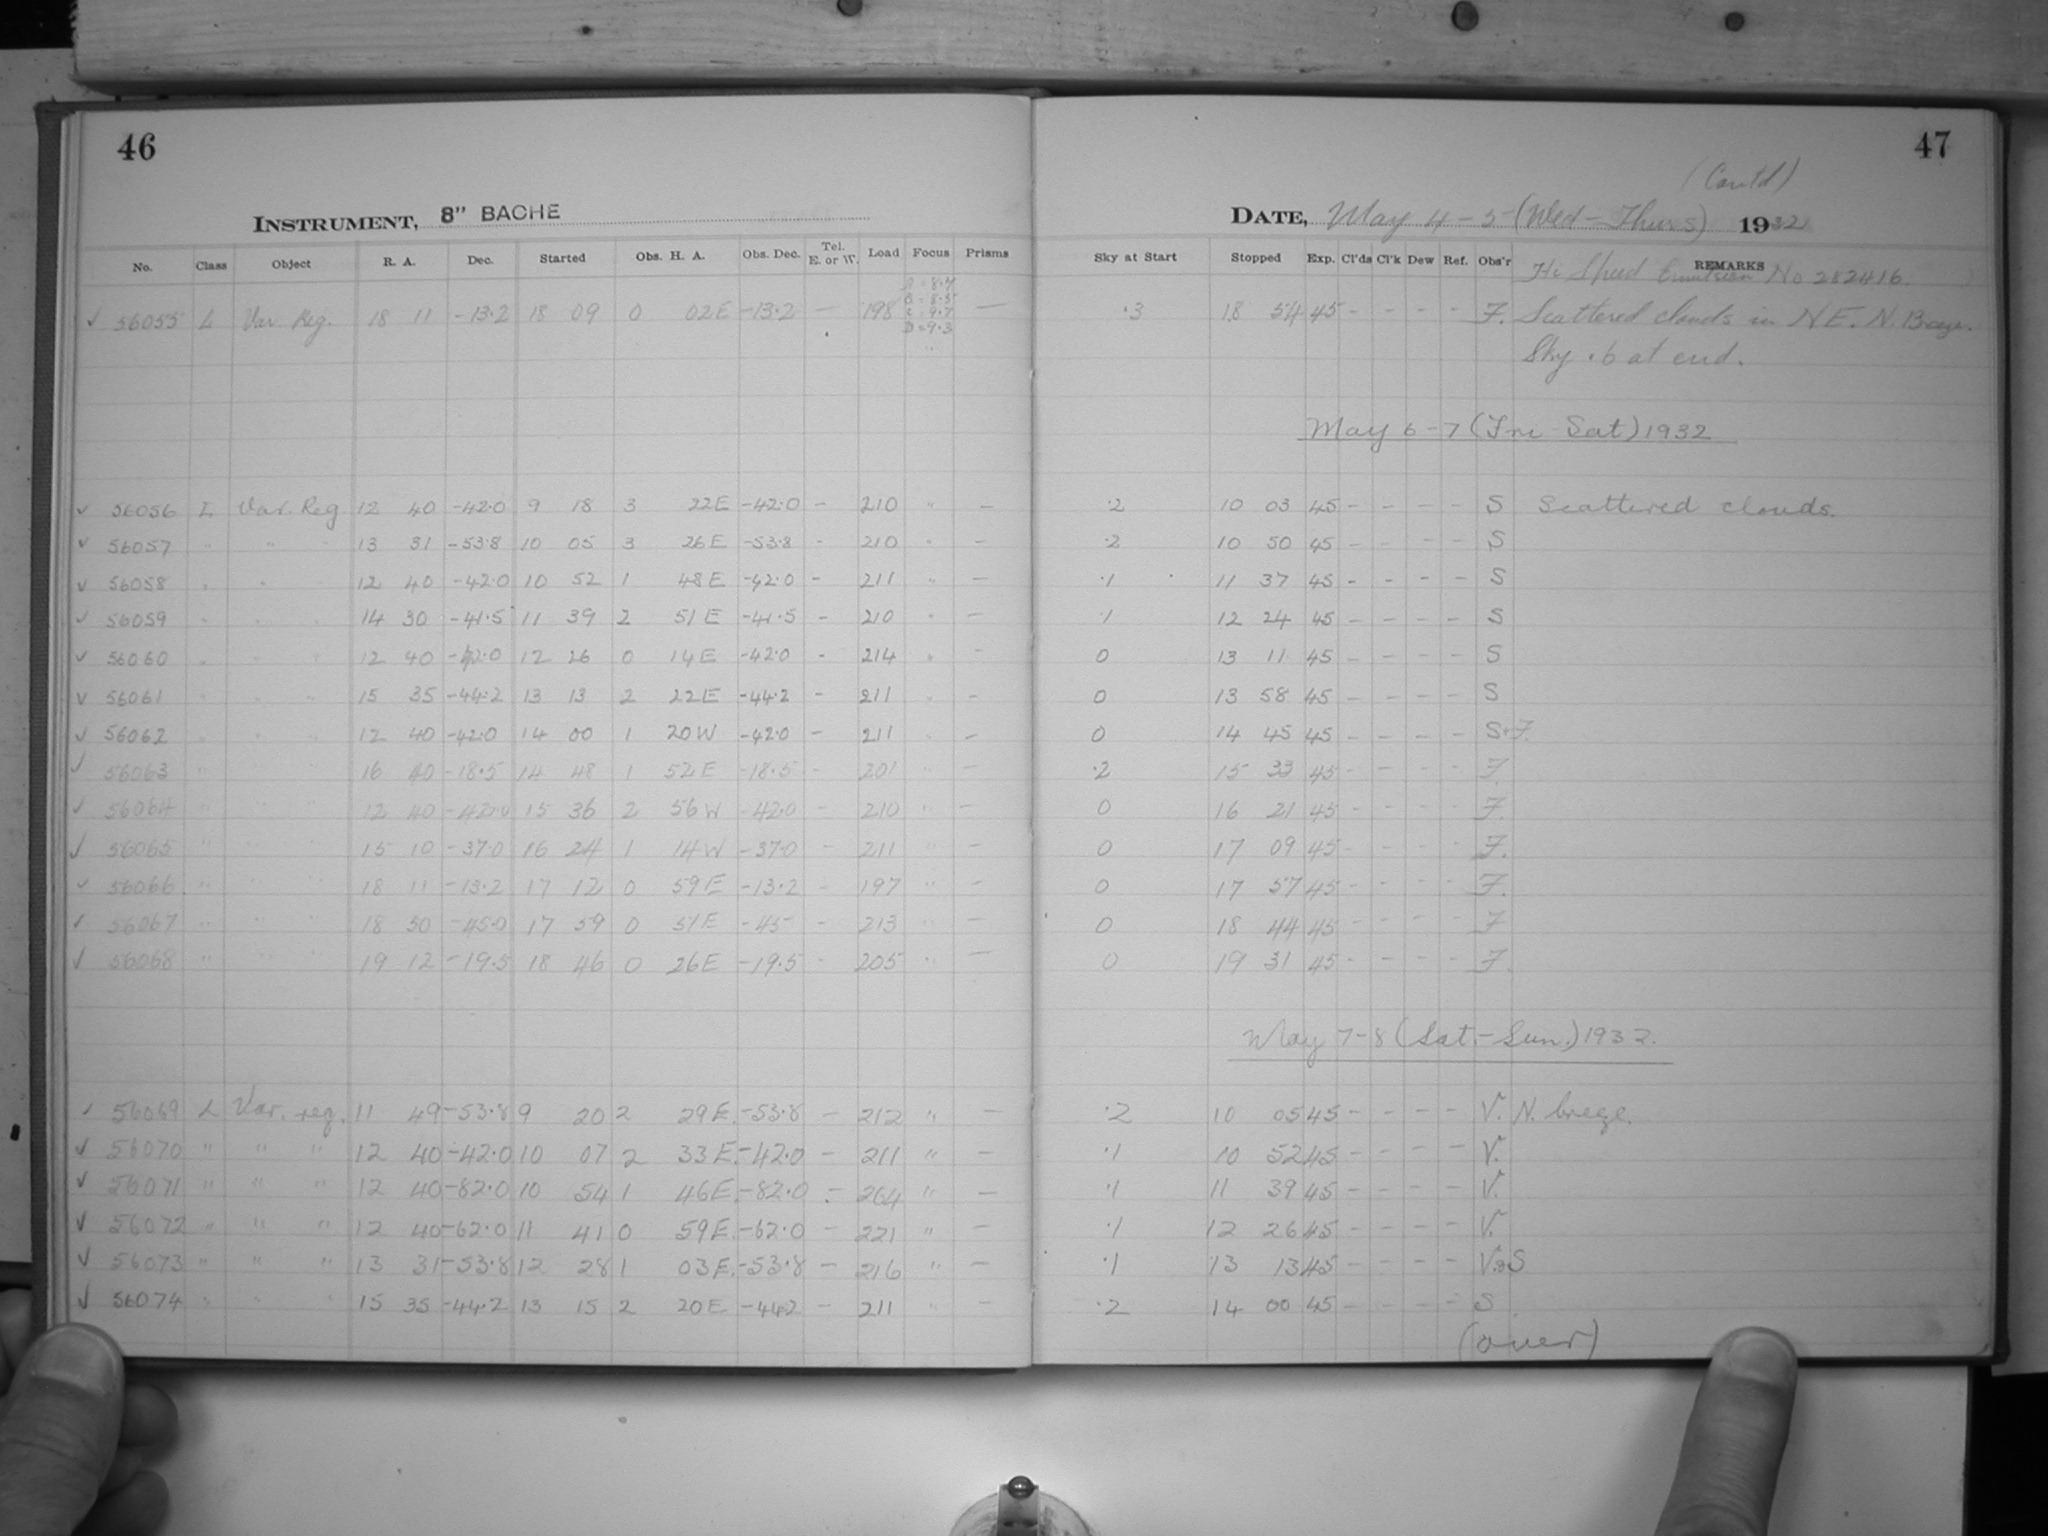 46
INSTRUMENT, 8" BACHE
No. Class Object R. A. Dec. Started Obs. H. A. Obs. Dec. Tel. E. or W. Load Focus Prisms
A = 8.7
B = 8.5
C = 9.7
D = 9.3
✓ 56055 L Var. Reg. 18 11 -13.2 18 09 0 02E -13.2 - 198 -
✓ 56056 L Var. Reg 12 40 -42.0 9 18 3 22E -42.0 - 210 " -
✓ 56057 " " " 13 31 -53.8 10 05 3 26E -53.8 - 210 " -
✓ 56058 " " 12 40 -42.0 10 52 1 48E -42.0 - 211 " -
✓ 56059 " " " 14 30 -41.5 11 39 2 51E -41.5 - 210 " -
✓ 56060 " " " 12 40 -42.0 12 26 0 14E -42.0 - 214 " -
✓ 56061 " " " 15 35 -44.2 13 13 2 22E -44.2 - 211 " -
✓ 56062 " " " 12 40 -42.0 14 00 1 20W -42.0 - 211 " -
✓ 56063 " " " 16 40 -18.5 14 48 1 52E -18.5 - 201 " -
✓ 56064 " " " 12 40 -42.0 15 36 2 56W -42.0 - 210 " -
✓ 56065 " " " 15 10 -37.0 16 24 1 14W -37.0 - 211 " -
✓ 56066 " " " 18 11 -13.2 17 12 0 59E -13.2 - 197 " -
✓ 56067 " " " 18 50 -45.0 17 59 0 51E -45 - 213 " -
✓ 56068 " " " 19 12 -19.5 18 46 0 26E -19.5 - 205 " -
✓ 56069 L Var. reg. 11 49 -53.8 9 20 2 29E. -53.8 - 212 " -
✓ 56070 " " " 12 40 -42.0 10 07 2 33E. -42.0 - 211 " -
✓ 56071 " " " 12 40 -82.0 10 54 1 46E. -82.0 - 264 " -
✓ 56072 " " " 12 40 -62.0 11 41 0 59E. -62.0 - 221 " -
✓ 56073 " " " 13 31 -53.8 12 28 1 03E. -53.8 - 216 " -
✓ 56074 " " " 15 35 -44.2 13 15 2 20E -44.2 - 211 " -
47
(Contd)
DATE, May 4-5 (Wed-Thurs) 1932
Sky at Start Stopped Exp. Cl'ds Cl'k Dew Ref. Obs'r REMARKS
Hi Speed Emulsion No 282416.
.3 18 54 45 - - - - F. Scattered clouds in NE. N. Breeze.
Sky .6 at end.
May 6-7 (Fri Sat) 1932
.2 10 03 45 - - - - S Scattered clouds.
.2 10 50 45 - - - - S
.1 11 37 45 - - - - S
.1 12 24 45 - - - - S
0 13 11 45 - - - - S
0 13 58 45 - - - - S
0 14 45 45 - - - - S+F.
.2 15 33 45 - - - - F.
0 16 21 45 - - - - F.
0 17 09 45 - - - - F.
0 17 57 45 - - - - F.
0 18 44 45 - - - - F
0 19 31 45 - - - - F.
May 7-8 (Sat.-Sun.) 1932.
.2 10 05 45 - - - - V. N. breeze.
.1 10 52 45 - - - - V.
.1 11 39 45 - - - - V.
.1 12 26 45 - - - - V.
.1 13 13 45 - - - - V.&S
.2 14 00 45 - - - - S
(over)